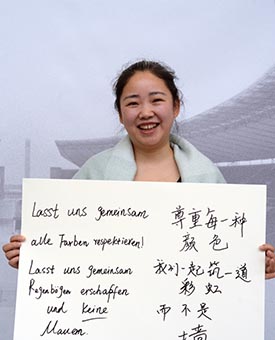 Lasst uns gemeinsam
alle Farben respektieren!
Lasst uns gemeinsam
Regenbögen erschaffen
und keine
Mauern.
尊重每一种
颜色
我们一起筑一道
彩虹
而不是
墙